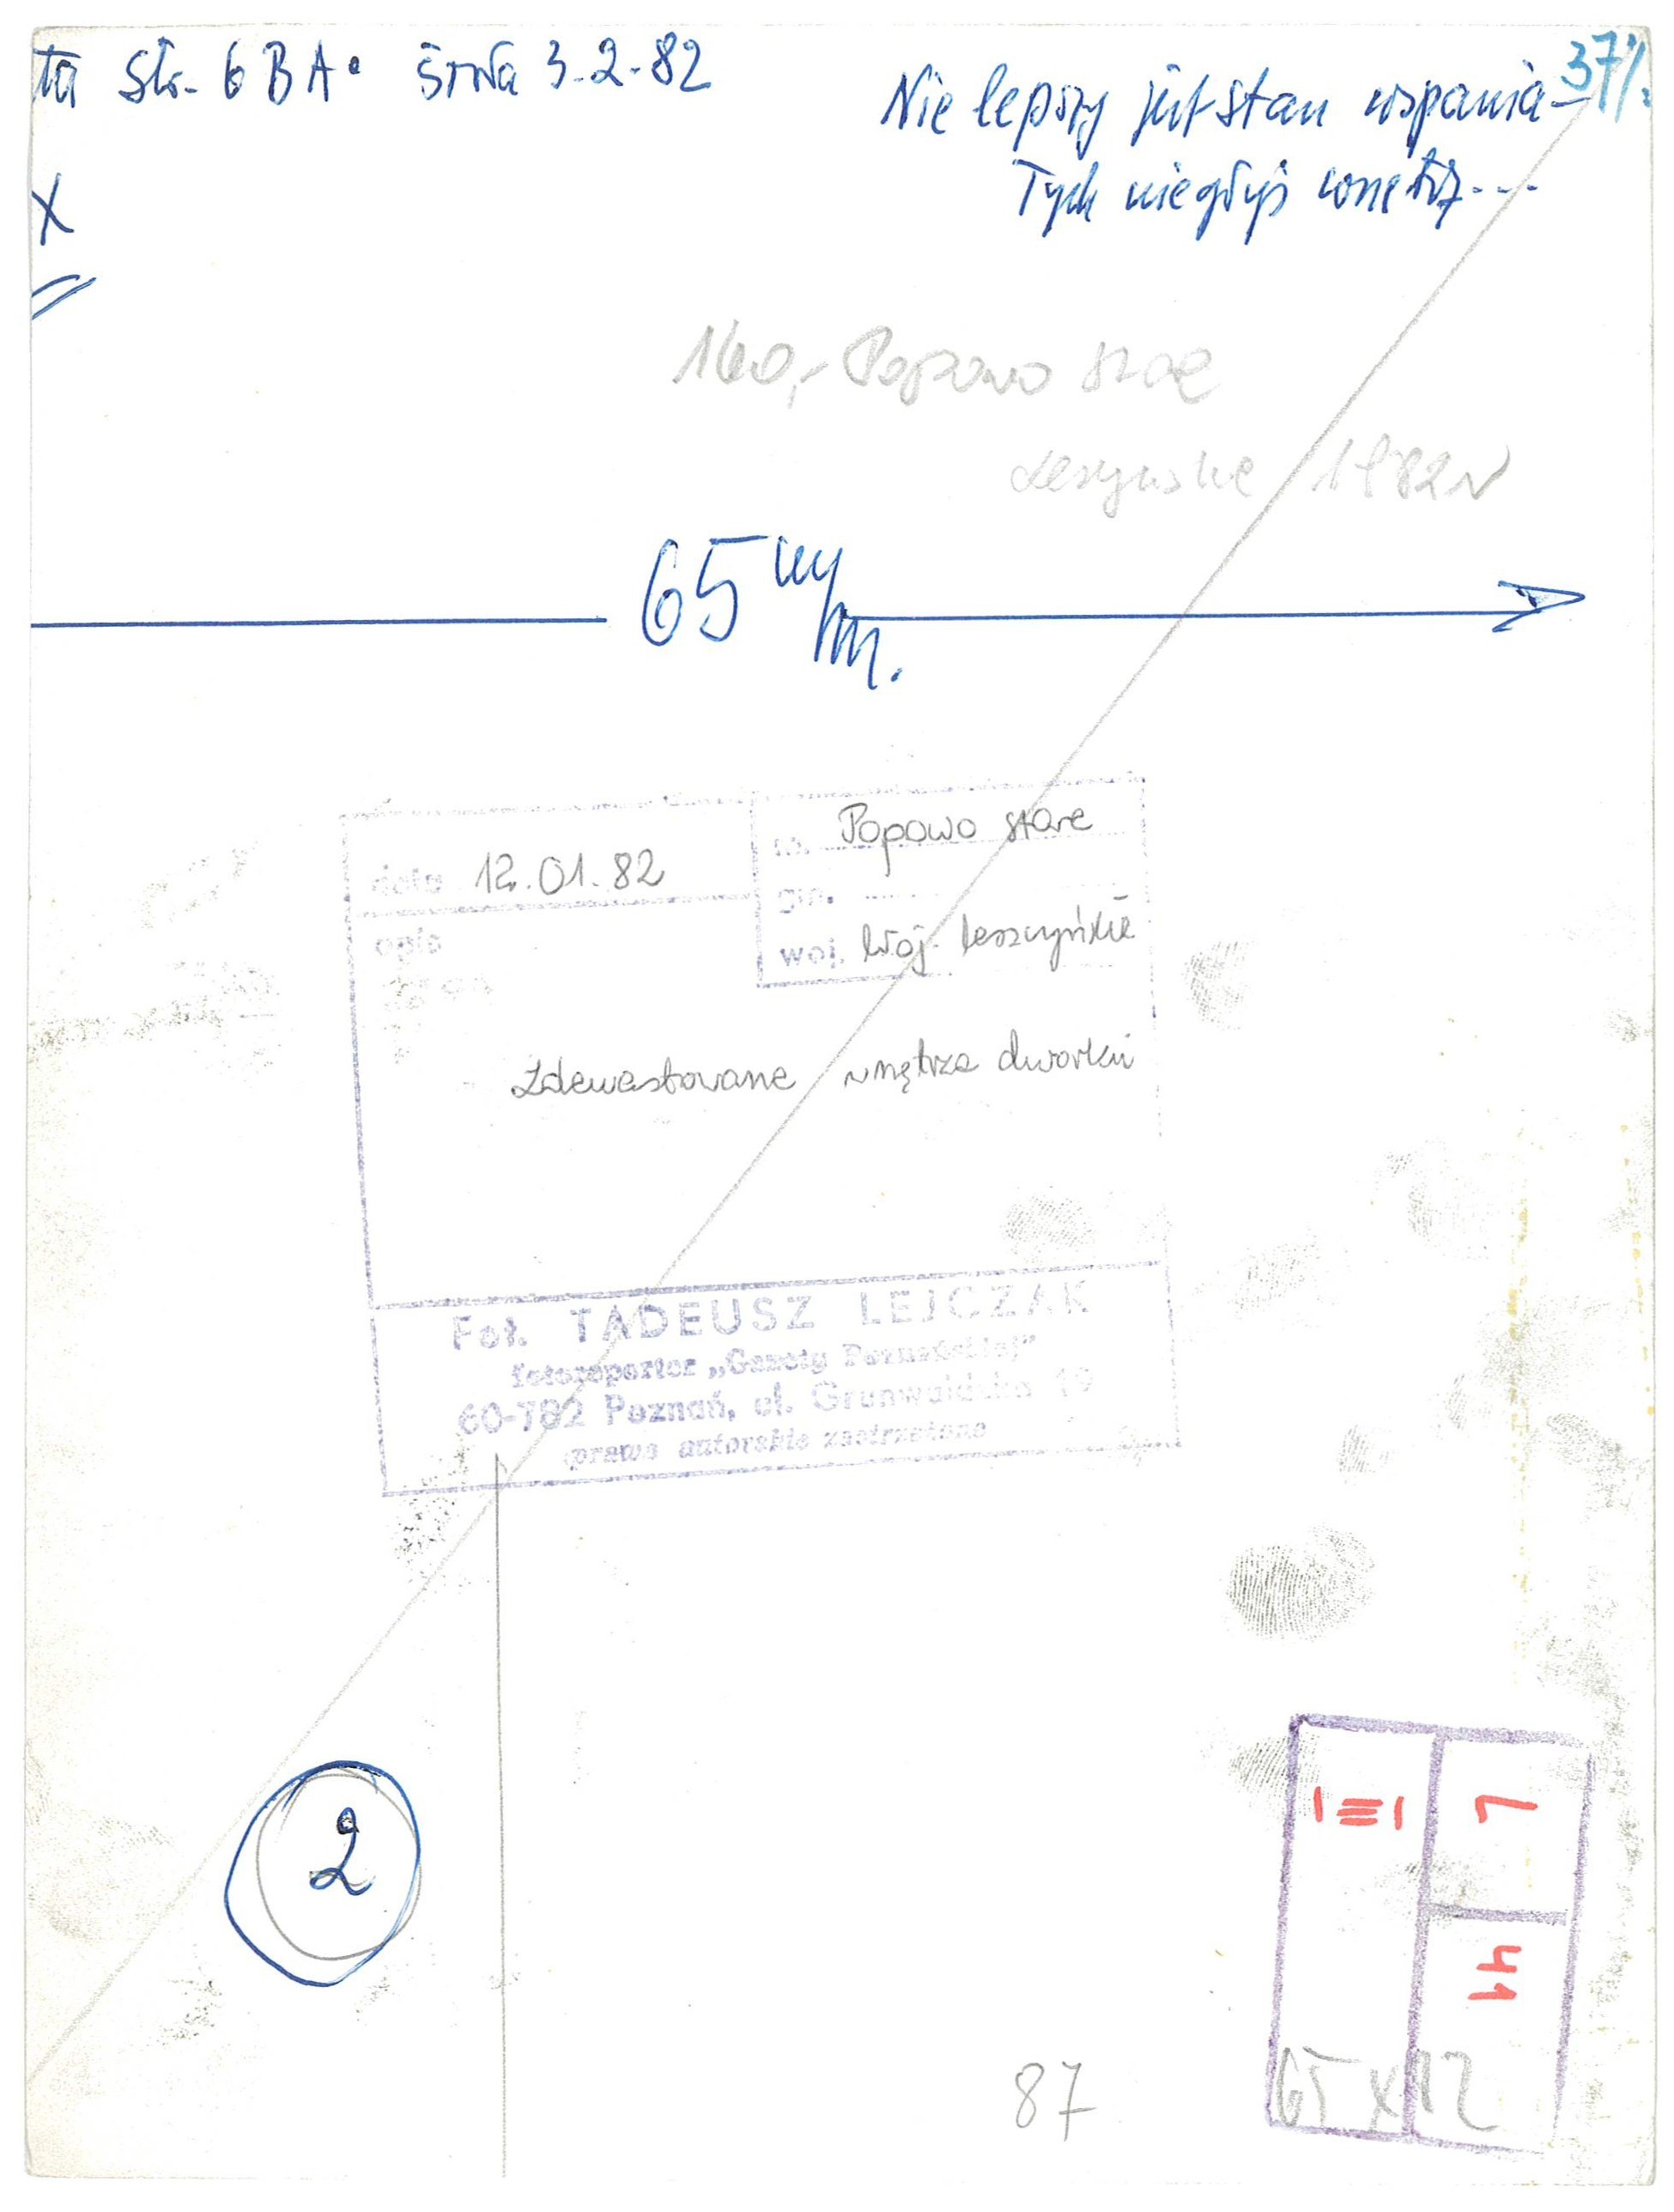 ta str. 6 BA. środa 3-2-82
37%
Nie lepszy jest stan wspania-
łych niegdyś wnętrz...
X
160,- Popowo stare
Leszczyńskie 1982 r
65 m/m.
data 12.01.82
m. Popowo stare
gm.
woj. Woj. leszczyńskie
opis
Zdewastowane wnętrza dworku
Fot. TADEUSZ LEJCZAK
fotoreporter „Gazety Poznańskiej”
60-782 Poznań, ul. Grunwaldzka 19
prawa autorskie zastrzeżone
2
87
65 x 82